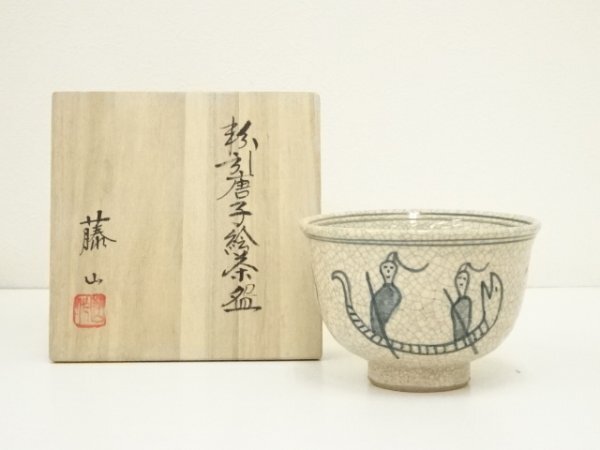 粉引唐子絵茶盌
藤山